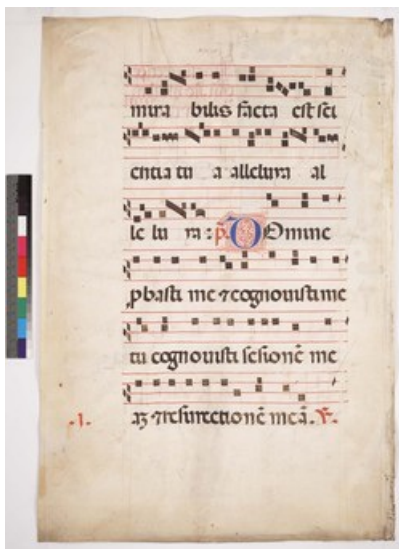 mira bilis facta est sci
entia tu a alleluya al
le lu ya : p̄. Domine
ꝓbasti me ⁊ cognouisti me
tu cognouisti sesionē me
aꝫ ⁊ resurectionē meā. V̄.
.1.